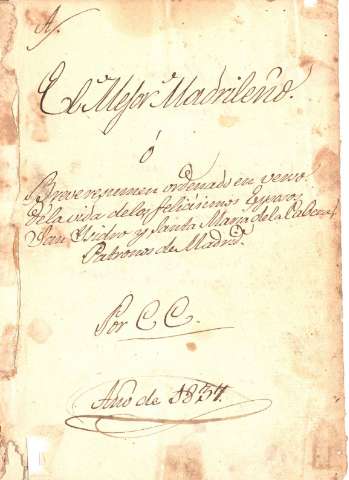 El Mejor Madrileño.
ó
Breve resumen ordenado en verso
de la vida de los felicisimos Esposos
San Ysidro y Santa Maria de la Cabeza
Patronos de Madrid.
Por C C.
Año de 1837.